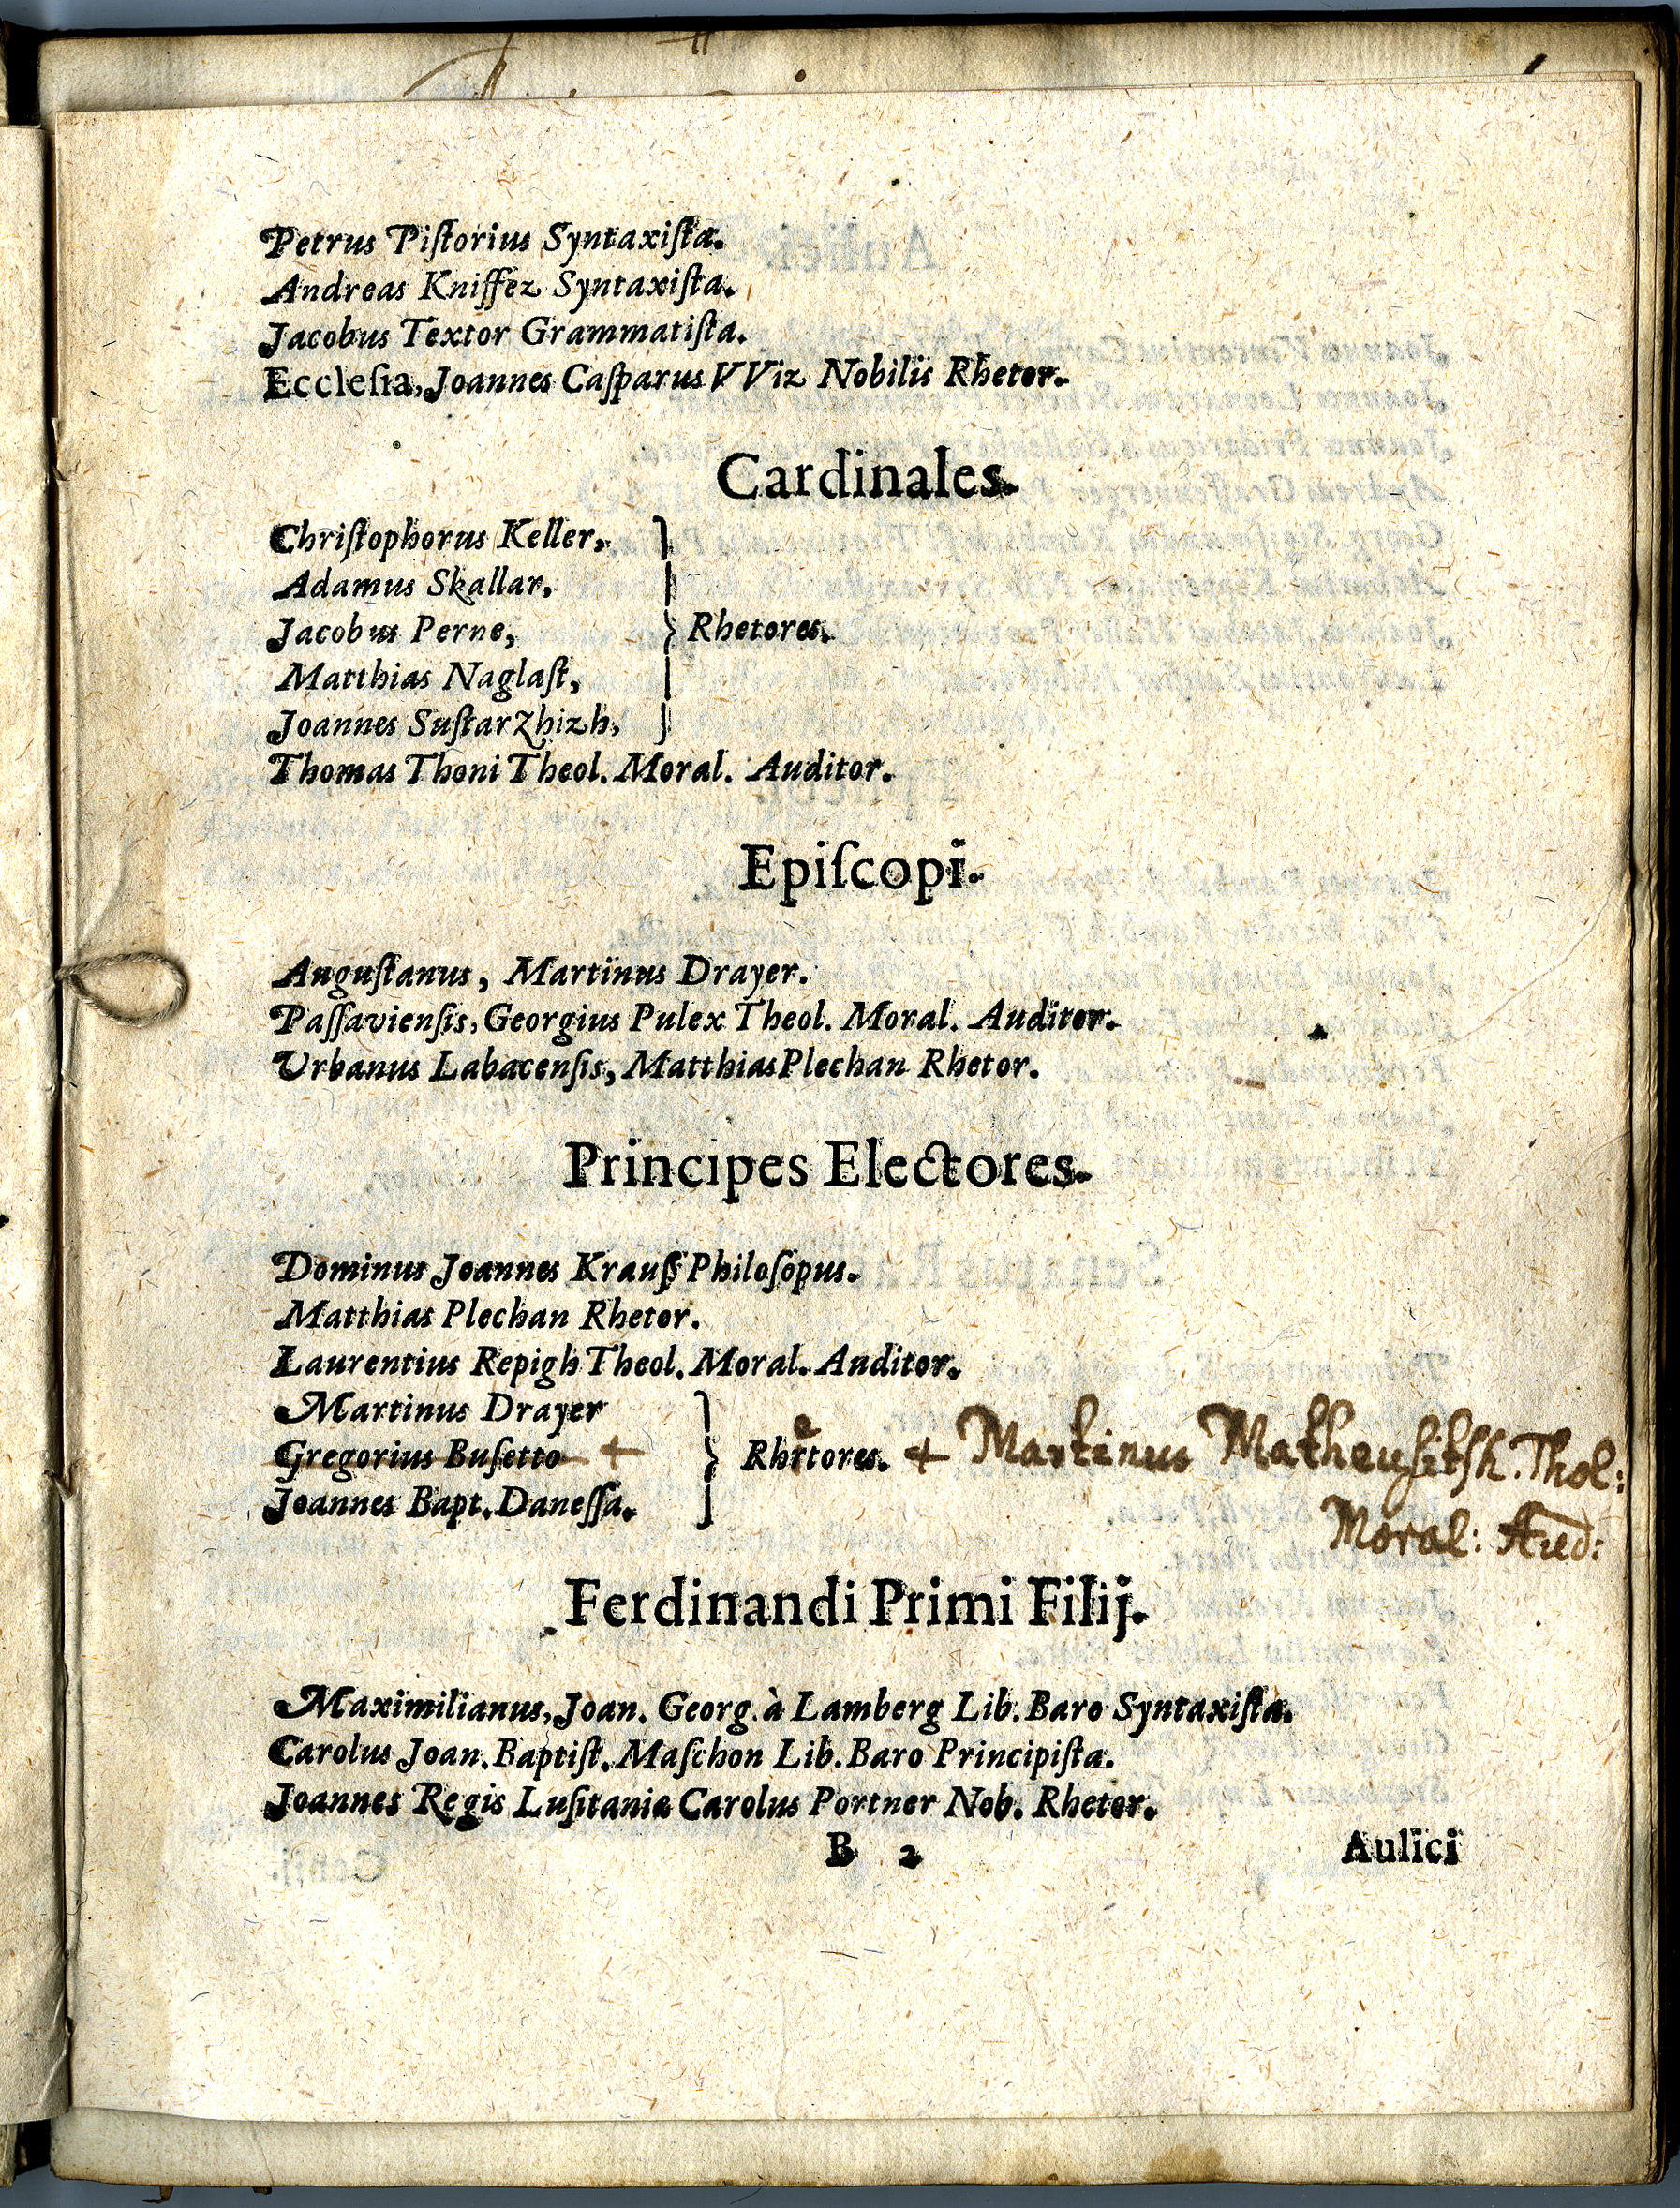 Petrus Piſtorius Syntaxiſta.
Andreas Kniffez Syntaxiſta.
Jacobus Textor Grammatiſta.
Eccleſia, Joannes Caſparus VViz Nobilis Rhetor.
Cardinales.
Chriſtophorus Keller,
Adamus Skallar,
Jacobus Perne, } Rhetores.
Matthias Naglaſt,
Joannes Suſtarzhizh,
Thomas Thoni Theol. Moral. Auditor.
Epiſcopi.
Auguſtanus, Martinus Drayer.
Paſſavienſis, Georgius Pulex Theol. Moral. Auditor.
Urbanus Labacenſis, Matthias Plechan Rhetor.
Principes Electores.
Dominus Joannes Krauß Philoſopus.
Matthias Plechan Rhetor.
Laurentius Repigh Theol. Moral. Auditor.
Martinus Drayer
Gregorius Buſetto + } Rhetores. + Martinus Matheuſitſh. Thol:
Joannes Bapt. Daneſſa. Moral: Aud:
Ferdinandi Primi Filij.
Maximilianus, Joan. Georg. à Lamberg Lib. Baro Syntaxiſta.
Carolus Joan. Baptiſt. Maſchon Lib. Baro Principiſta.
Joannes Regis Luſitaniæ Carolus Portner Nob. Rhetor.
B 2 Aulici